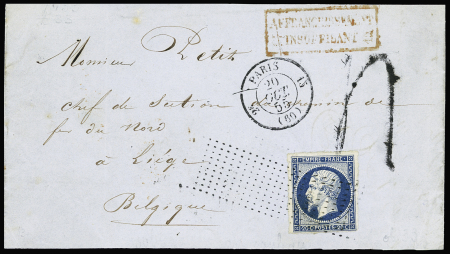 AFFRANCHISSEMENT
INSUFFISANT
Monsieur Petit
PARIS
20
OCT.
55
(60)
chef de Section au chemin de
fer du Nord
à Liége
Belgique
EMPIRE FRANC.
20 C. POSTES 20 C.